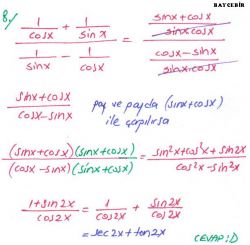 BAYCEBİR
8) (1/cosx + 1/sinx) / (1/sinx - 1/cosx) = ((sinx+cosx)/(sinx.cosx)) / ((cosx-sinx)/(sinx.cosx))
(sinx+cosx)/(cosx-sinx) pay ve payda (sinx+cosx)
ile çarpılırsa
((sinx+cosx)(sinx+cosx))/((cosx-sinx)(sinx+cosx)) = (sin²x+cos²x+sin2x)/(cos²x-sin²x)
(1+sin2x)/cos2x = 1/cos2x + sin2x/cos2x
=sec2x+tan2x
CEVAP:D